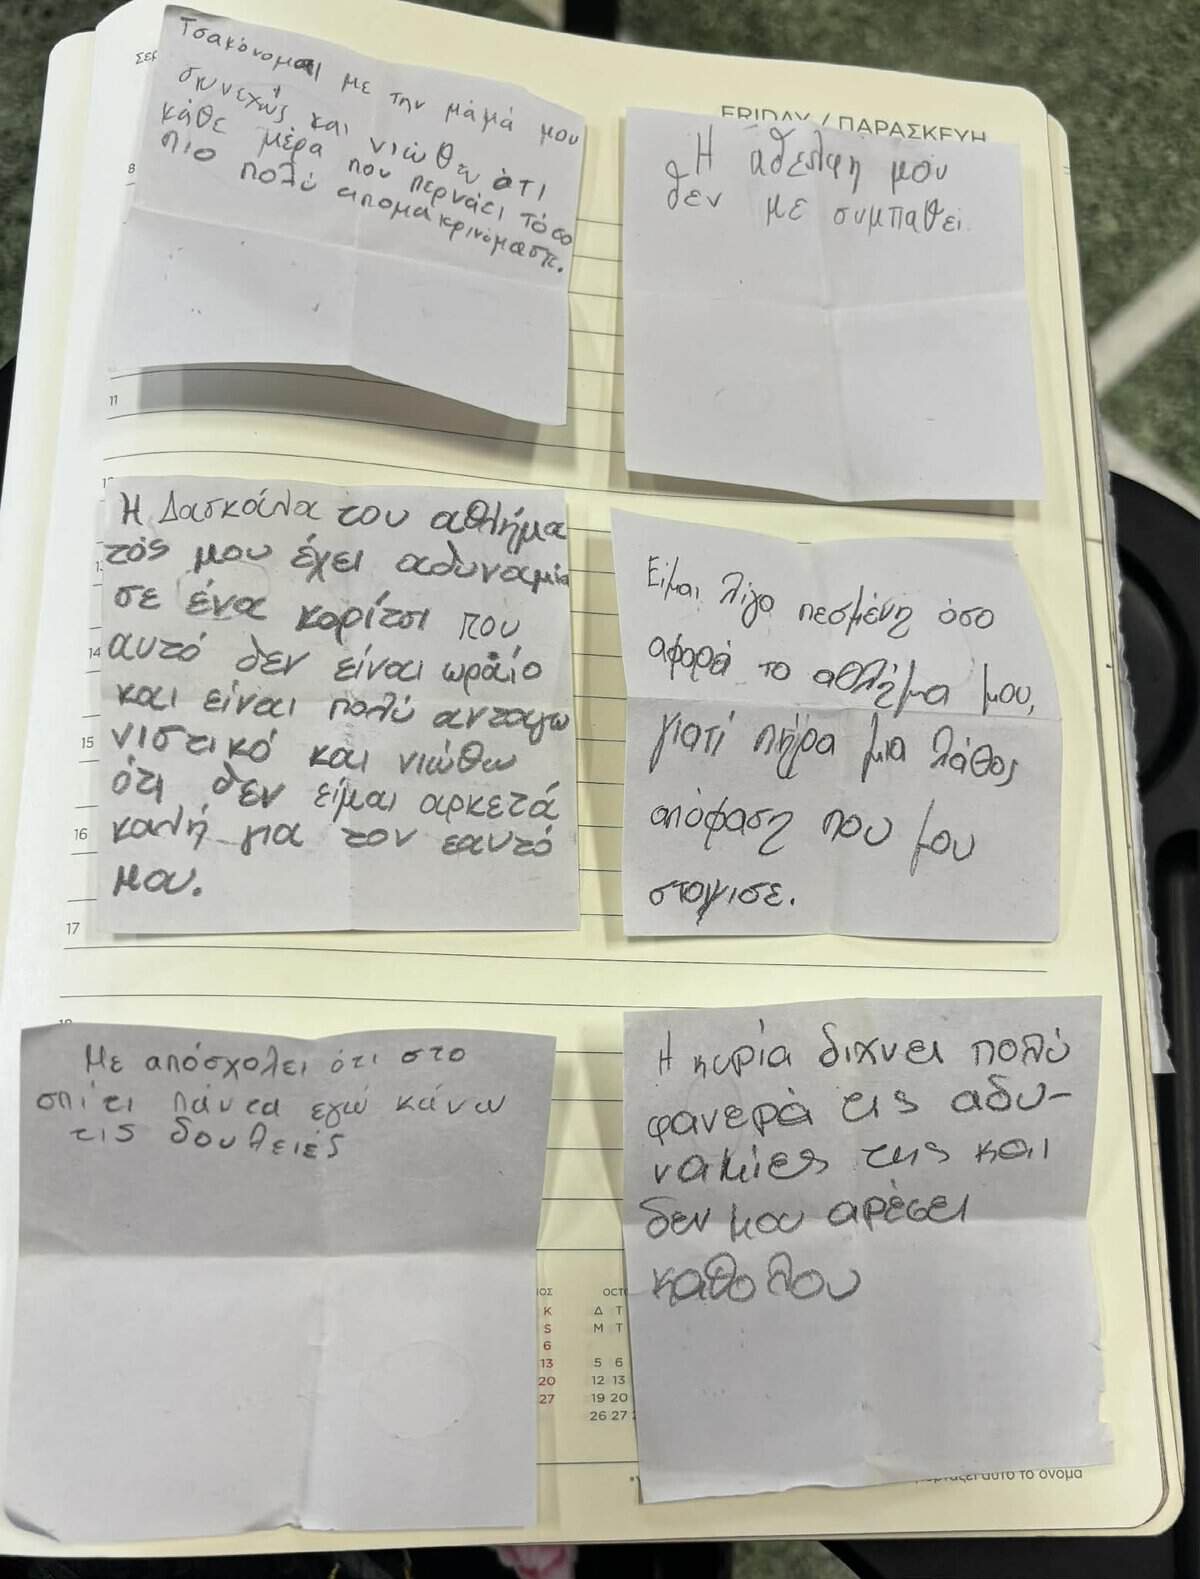 Τσακόνομαι με την μαμά μου
συνεχώς και νιώθω ότι
κάθε μέρα που περνάει τόσο
πιο πολύ απομακρινόμαστε.
FRIDAY / ΠΑΡΑΣΚΕΥΗ
Η αδελφή μου
δεν με συμπαθεί.
8
11
Η Δασκάλα του αθλήμα
τός μου έχει αδυναμία
σε ένα κορίτσι που
αυτό δεν είναι ωραίο
και είναι πολύ ανταγω
νιστικό και νιώθω
ότι δεν είμαι αρκετά
καλή για τον εαυτό
μου.
14
15
16
17
Είμαι λίγο πεσμένη όσο
αφορά το αθλημα μου,
γιατί πήρα μια λάθος
απόφαση που μου
στοιχισε.
Με απόσχολει ότι στο
σπίτι πάντα εγώ κάνω
τις δουλειές
Η κυρία διχνει πολύ
φανερά τις αδυ-
ναμίες της και
δεν μου αρέσει
καθολου
Κ
S
6
13
20
27
Δ Τ
M T
5 6
12 13
19 20
26 27
αυτό το όνομα